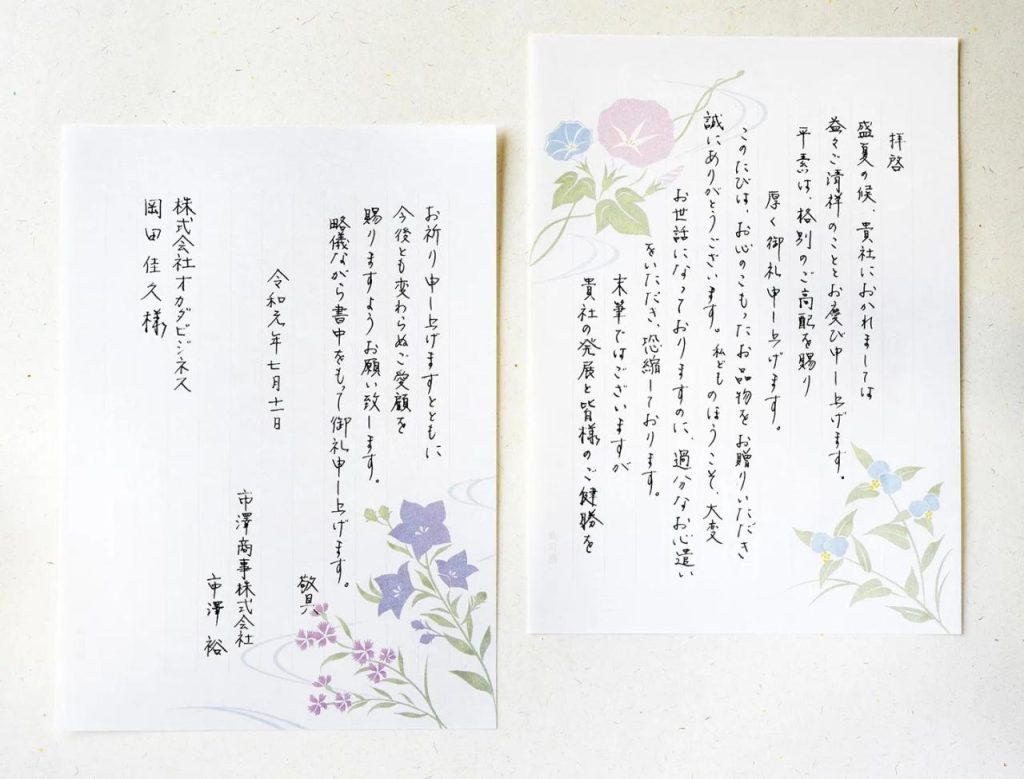 拝啓
盛夏の候、貴社におかれましては
益々ご清祥のこととお慶び申し上げます。
平素は、格別のご高配を賜り
厚く御礼申し上げます。
このたびは、お心のこもったお品物をお贈りいただき
誠にありがとうございます。私どものほうこそ、大変
お世話になっておりますのに、過分なお心遣い
をいただき、恐縮しております。
末筆ではございますが
貴社の発展と皆様のご健勝を
お祈り申し上げますとともに
今後とも変わらぬご愛顧を
賜りますようお願い致します。
略儀ながら書中をもって御礼申し上げます。
敬具
令和元年七月十一日
市澤商事株式会社
市澤 裕
株式会社オカダビジネス
岡田佳久様